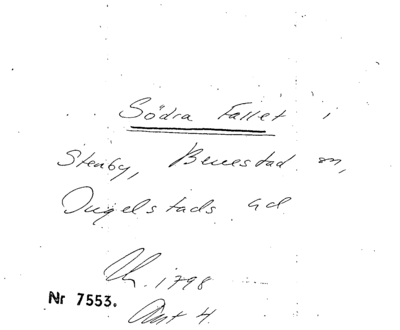 Södra Fallet i
Stenby, Benestad sn,
Ingelstads hd
Uk. 1798
Nr 7553.
Ant 4